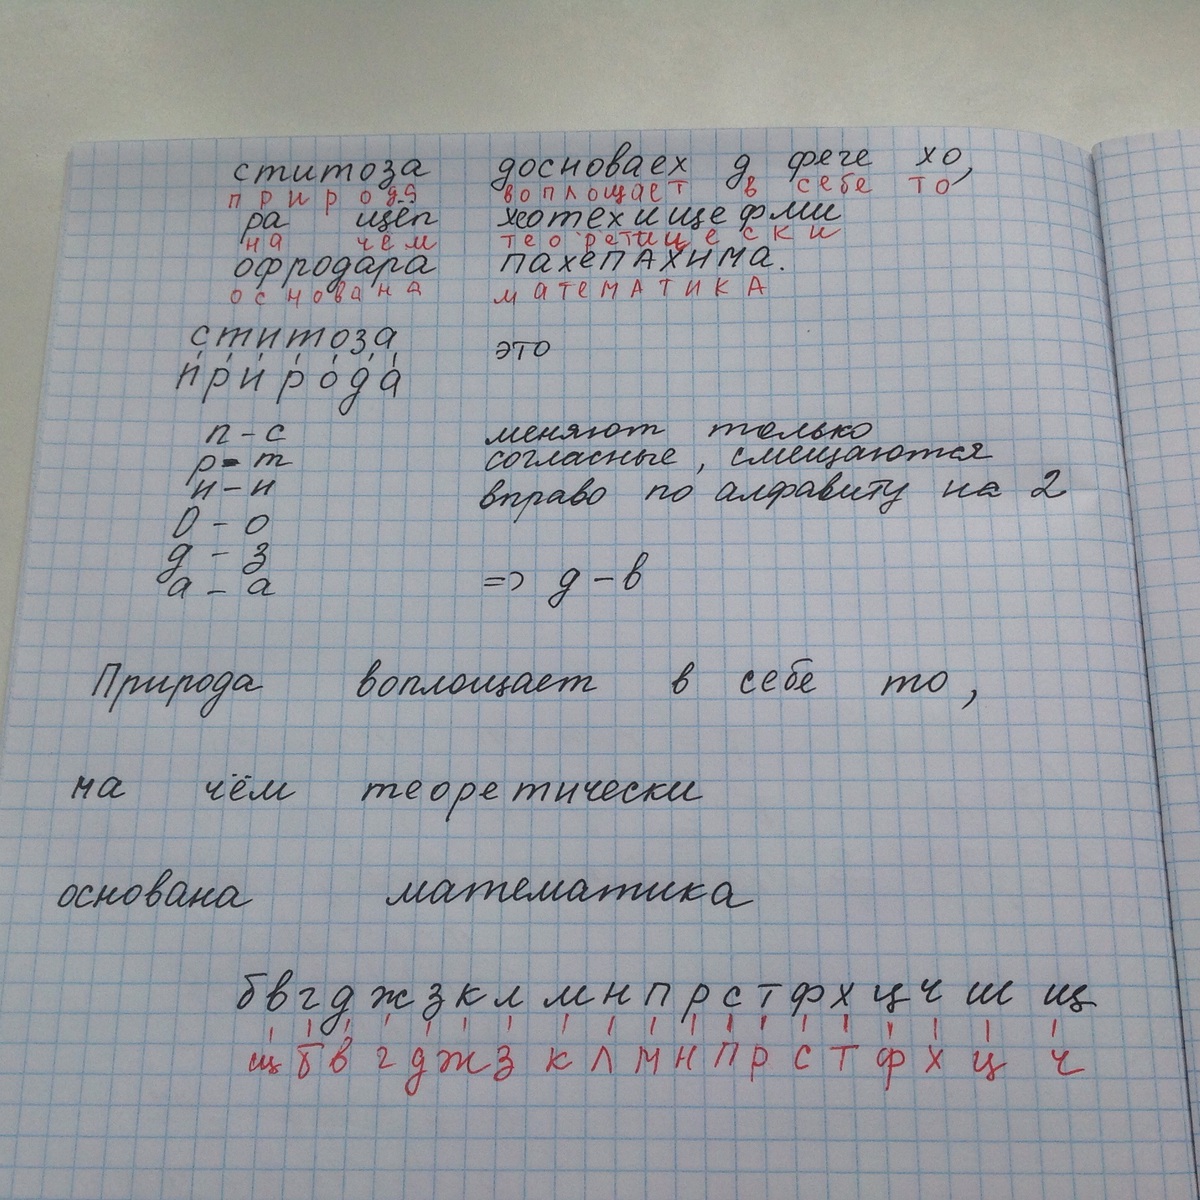 ститоза досноваех д феге хо,
природа воплощает в себе то
ра щёп хотехищефми
на чем теоретически
офродара пахепахима.
основана математика
ститоза это
природа
п – с меняют только
р – т согласные, смещаются
и – и вправо по алфавиту на 2
о – о
д – з
а – а => д – в
Природа воплощает в себе то,
на чём теоретически
основана математика
бвгджзклмнпрстфхцчшщ
щбвгджзклмнпрстфхцч